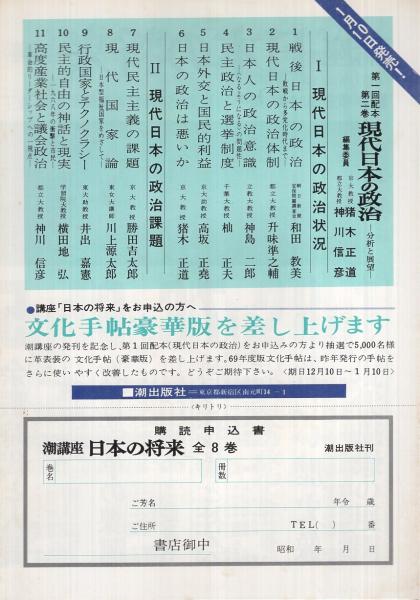 1月10日発売!
第一回配本
第二巻 現代日本の政治 —分析と展望—
編集委員
京大教授 猪木正道
都立大教授 神川信彦
I 現代日本の政治状況
1 戦後日本の政治
—敗戦から多党化時代まで—
和田教美
2 現代日本の政治体制
立教大教授 升味準之輔
3 日本人の政治意識
都立大教授 神島二郎
4 民主政治と選挙制度
千葉大教授 柚正夫
5 日本外交と国民的利益
京大助教授 高坂正堯
6 日本の政治は悪いか
京大教授 猪木正道
II 現代日本の政治課題
7 現代民主主義の課題
京大教授 勝田吉太郎
8 現代国家論
—日本型福祉国家をめざして—
東女大講師 川上源太郎
9 行政国家とテクノクラシー
東大助教授 井出嘉憲
10 民主的自由の神話と現実
—一九六八年の衝撃と市民—
学習院大教授 横田地弘
11 高度産業社会と議会政治
都立大教授 神川信彦
●講座「日本の将来」をお申込の方へ
文化手帖豪華版を差し上げます
潮講座の発刊を記念し、第1回配本《現代日本の政治》をお申込みの方より抽選で5,000名様
に革表装の 文化手帖(豪華版) を差し上げます。69年度版文化手帖は、昨年発行の手帖を
さらに使いやすく改善したものです。どうぞご期待下さい。〈期日12月10日〜1月10日〉
潮出版社=東京都新宿区南元町14-1
〈キリトリ〉
購読申込書
潮講座 日本の将来 全8巻 潮出版社刊
巻名
冊数
ご芳名 年令 歳
ご住所 TEL( ) 番
書店御中 昭和 年 月 日